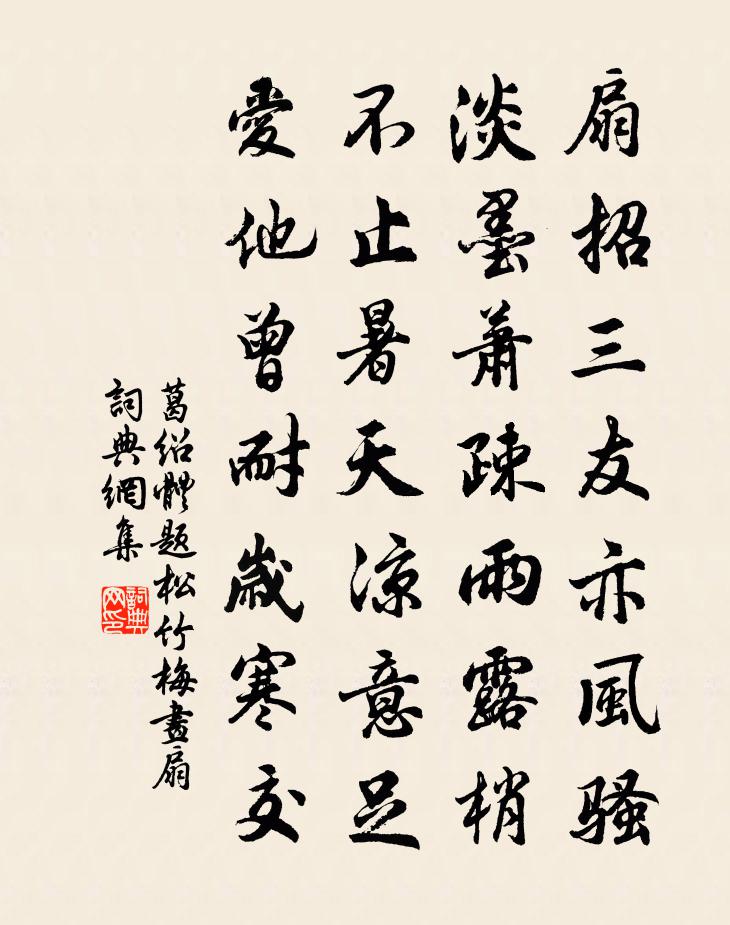 扇招三友亦風骚
淡墨萧疎雨露梢
不止暑天凉意足
愛他曾耐歲寒交
葛绍體题松竹梅畫扇
詞典網集
詞典网印